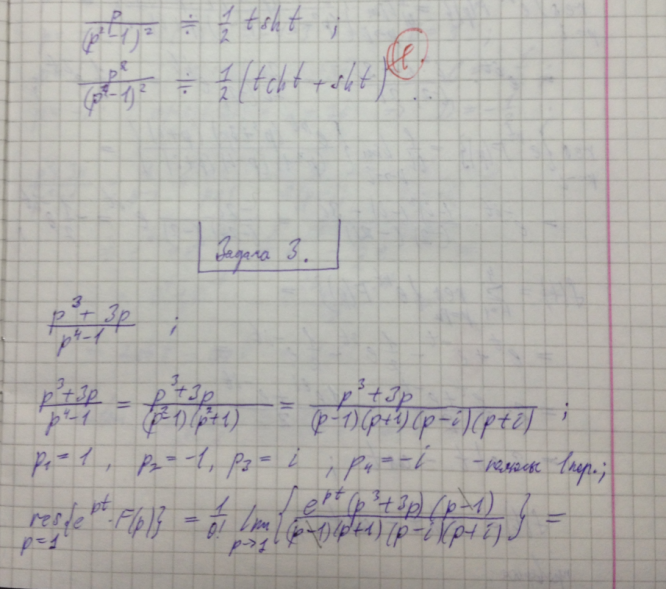 p/(p²-1)² ≑ 1/2 t sht ;
p²/(p²-1)² ≑ 1/2 (t cht + sht)
Задача 3.
(p³ + 3p)/(p⁴-1) ;
(p³+3p)/(p⁴-1) = (p³+3p)/((p²-1)(p²+1)) = (p³+3p)/((p-1)(p+1)(p-i)(p+i)) ;
p₁ = 1 , p₂ = -1, p₃ = i , p₄ = -i - полюсы 1 пор.;
res_{p=1}{e^{pt}·F(p)} = 1/0! lim_{p→1} { e^{pt}(p³+3p)(p-1)/((p-1)(p+1)(p-i)(p+i)) } =